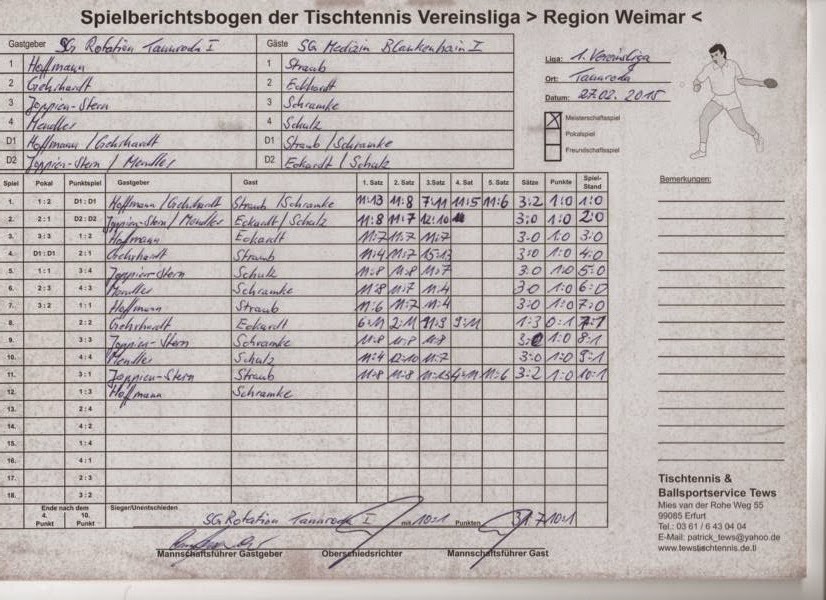 Spielberichtsbogen der Tischtennis Vereinsliga > Region Weimar <
Gastgeber SG Rotation Tannroda I Gäste SG Medizin Blankenhain I
1 Hoffmann 1 Straub
2 Gehrhardt 2 Eckhardt
3 Joppien-Stern 3 Schramke
4 Mendler 4 Schulz
D1 Hoffmann / Gehrhardt D1 Straub / Schramke
D2 Joppien-Stern / Mendler D2 Eckardt / Schulz
Liga: 1. Vereinsliga
Ort: Tannroda
Datum: 27.02. 2015
Meisterschaftsspiel
Pokalspiel
Freundschaftsspiel
Bemerkungen:
Spiel Pokal Punktspiel Gastgeber Gast 1. Satz 2. Satz 3.Satz 4. Sat 5. Satz Sätze Punkte Spiel-Stand
1. 1 : 2 D1 : D1 Hoffmann / Gehrhardt Straub / Schramke 11:13 11:8 7:11 11:5 11:6 3:2 1:0 1:0
2. 2 : 1 D2 : D2 Joppien-Stern / Mendler Eckardt / Schulz 11:8 11:7 12:10 3:0 1:0 2:0
3. 3 : 3 1 : 2 Hoffmann Eckardt 11:7 11:7 11:7 3:0 1:0 3:0
4. D1 : D1 2 : 1 Gehrhardt Straub 11:4 11:7 15:13 3:0 1:0 4:0
5. 1 : 1 3 : 4 Joppien-Stern Schulz 11:8 11:8 11:7 3:0 1:0 5:0
6. 2 : 3 4 : 3 Mendler Schramke 11:8 11:7 11:4 3:0 1:0 6:0
7. 3 : 2 1 : 1 Hoffmann Straub 11:6 11:7 11:4 3:0 1:0 7:0
8. 2 : 2 Gehrhardt Eckardt 6:11 2:11 11:9 9:11 1:3 0:1 7:1
9. 3 : 3 Joppien-Stern Schramke 11:8 11:8 11:8 3:0 1:0 8:1
10. 4 : 4 Mendler Schulz 11:4 12:10 11:7 3:0 1:0 9:1
11. 3 : 1 Joppien-Stern Straub 11:8 11:8 11:13 4:11 11:6 3:2 1:0 10:1
12. 1 : 3 Hoffmann Schramke
13. 2 : 4
14. 4 : 2
15. 1 : 4
16. 4 : 1
17. 2 : 3
18. 3 : 2
Ende nach dem
4. Punkt 10. Punkt
Sieger/Unentschieden
SG Rotation Tannroda I mit 10:1 Punkten 10:1
Mannschaftsführer Gastgeber Oberschiedsrichter Mannschaftsführer Gast
Tischtennis &
Ballsportservice Tews
Mies van der Rohe Weg 55
99085 Erfurt
Tel.: 03 61 / 6 43 04 04
E-Mail: patrick_tews@yahoo.de
www.tewstischtennis.de.tl